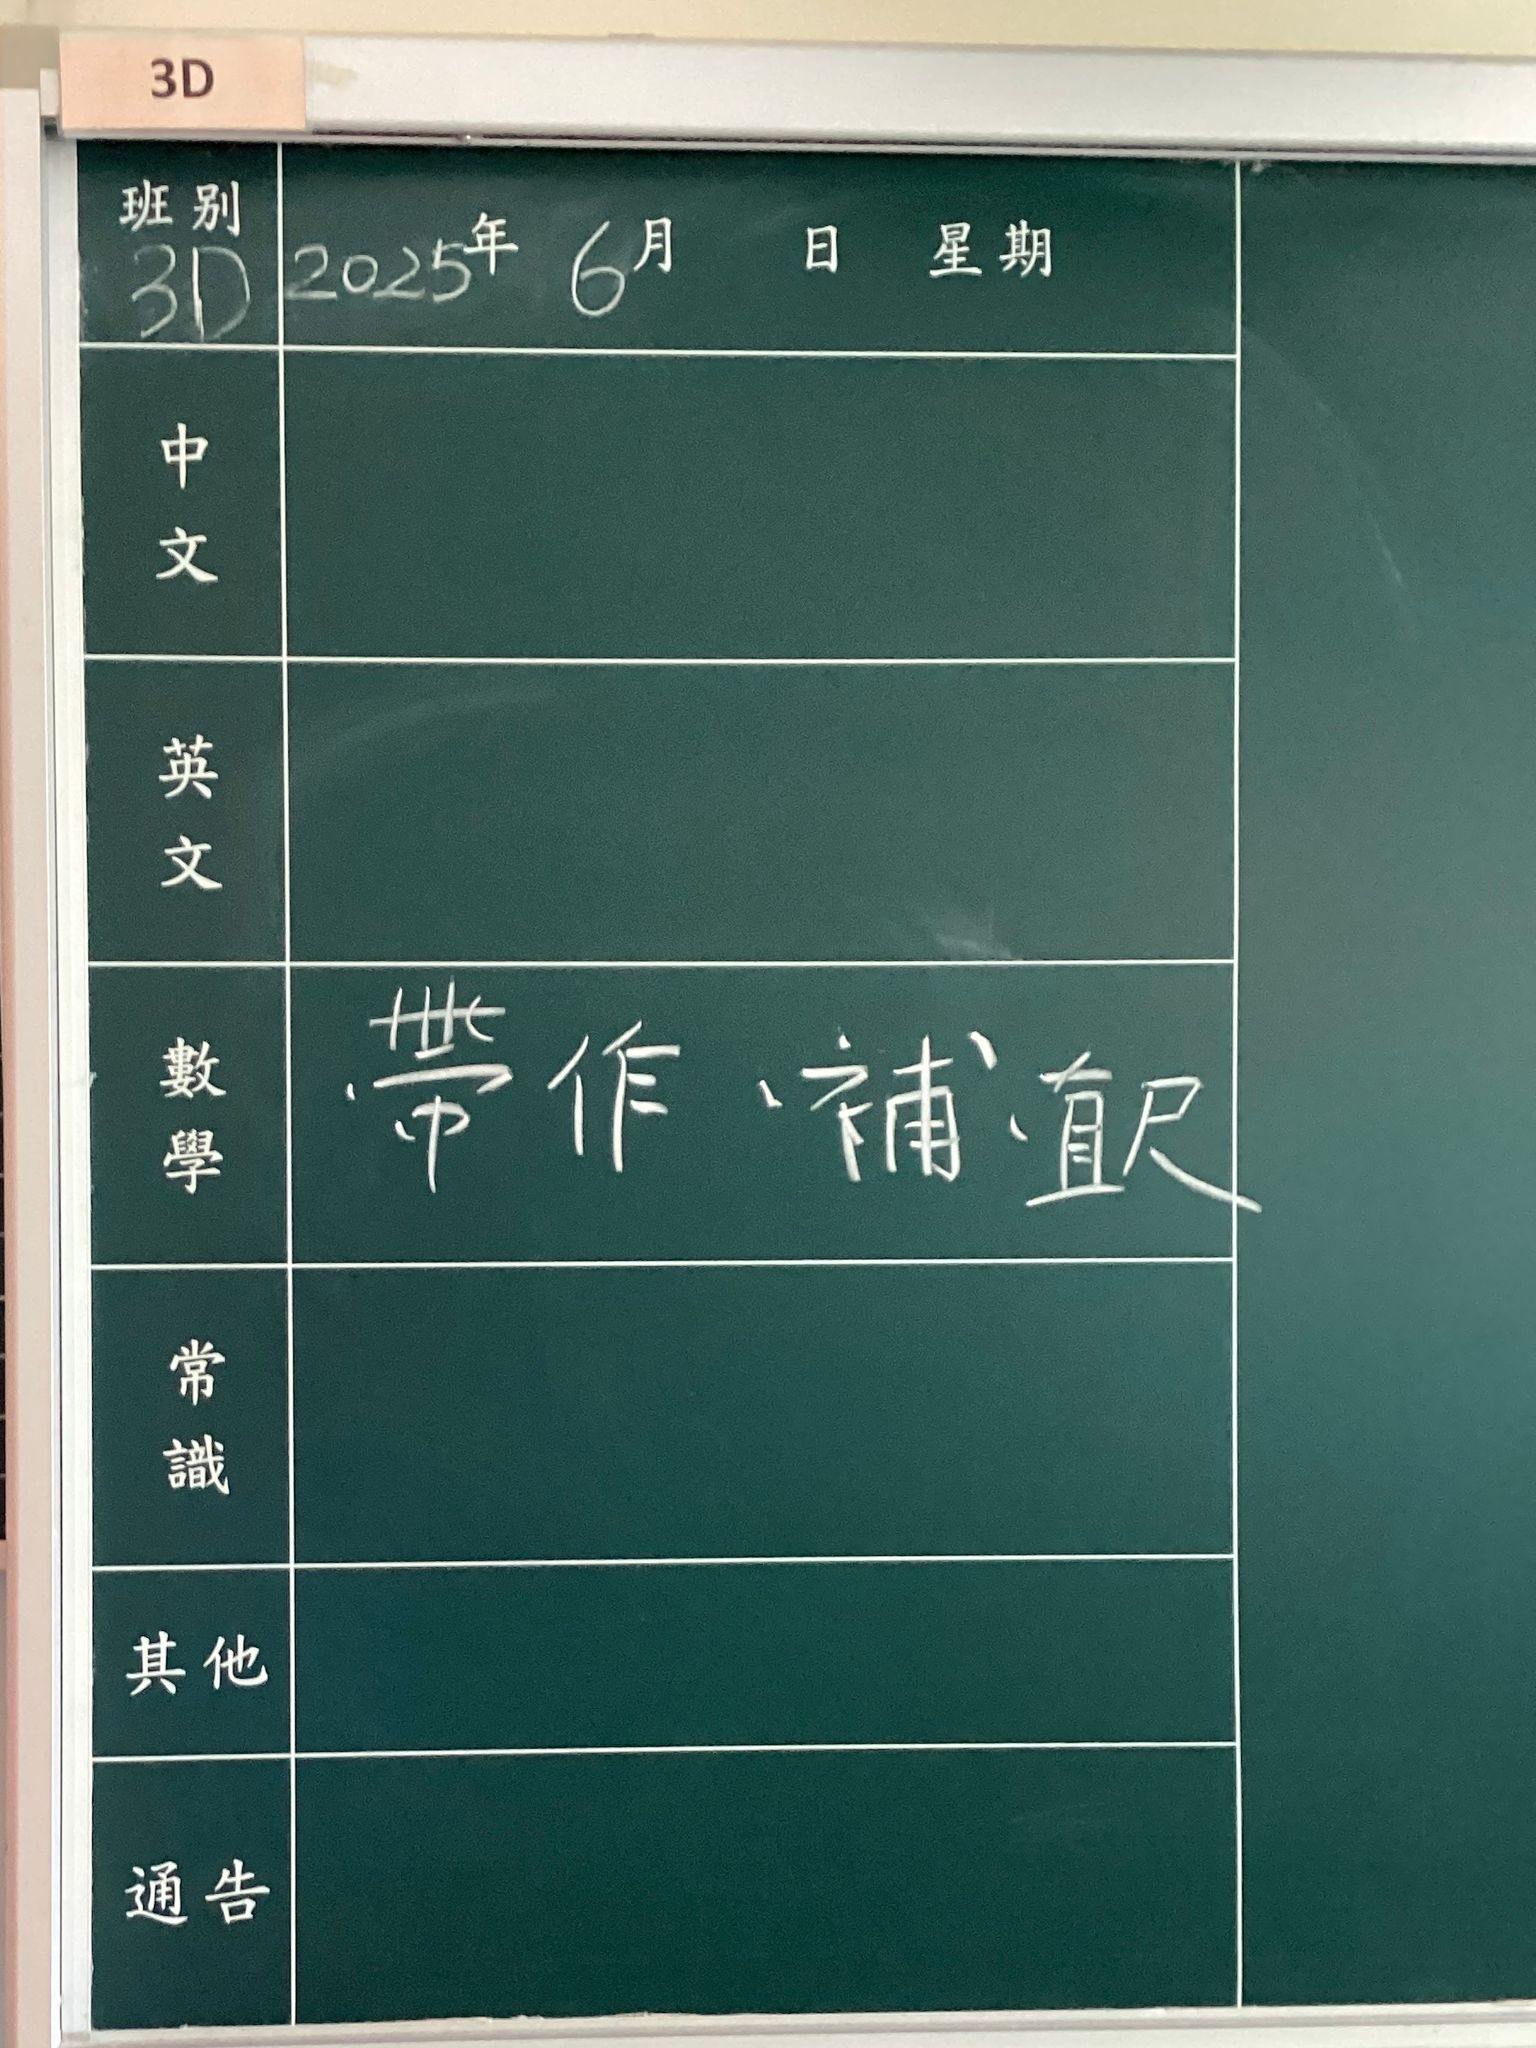 3D
班別
3D
2025年 6月 日 星期
中文
英文
數學
帶作、補、直尺
常識
其他
通告